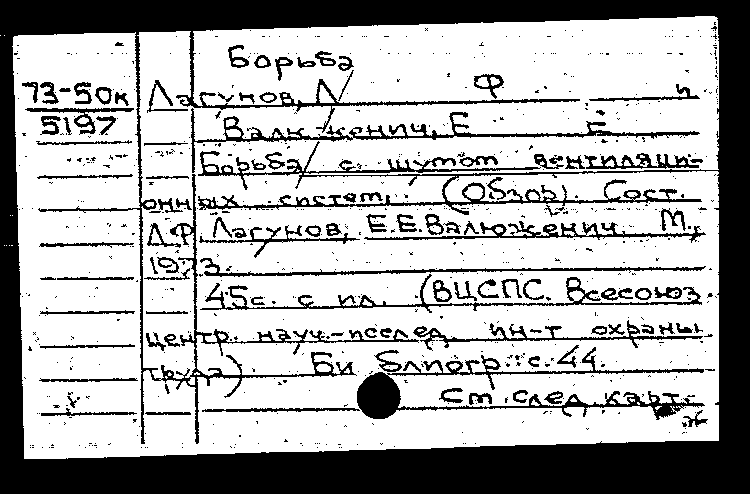 Борьба
73-50к Лагунов, Л Ф
5197 Валюженич, Е Е
Борьба с шумом вентиляци-
онных систем. (Обзор). Сост.
Л.Ф. Лагунов, Е.Е. Валюженич. М.,
1973.
45с. с ил. (ВЦСПС. Всесоюз.
центр. науч.-исслед. ин-т охраны
труда) Библиогр.: с. 44.
См. след. карт.